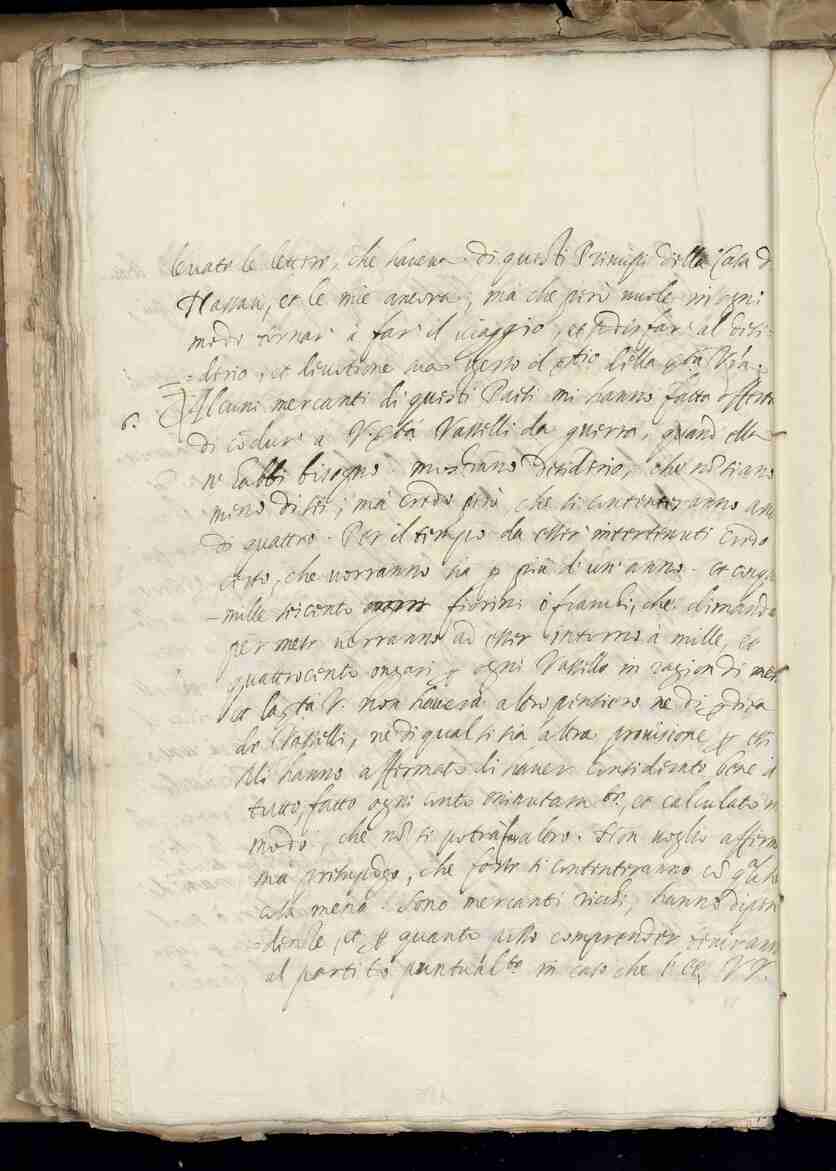 levate le lettere, che haveva di questi Principi della Casa d
Nassau, et le mie ancora, mà che però vuole in ogni
modo tornar à far il viaggio, et sodisfar al desi-
=derio, et divotione sua verso il
6. Alcuni mercanti di questi Paesi mi hanno fatta offerta
di cõdur a V. Sertà Vasselli da guerra, quando ella
n' habbi bisogno. mostrano desiderio, che nõ siano
meno di sei; mà credo però, che si contenteranno anc
di quattro. Per il tempo da esser intertenuti credo
certo, che vorranno sia p più di un' anno. et cinqu
-mille seicento fiorini ò franchi, che dimanda
per mese verranno ad esser intorno à mille, et
quattrocento ongari p ogni Vassello in ragion di mese
et la Stà V. non haverà altro pensiero ne di
de Vasselli, ne di qual si sia altra provisione p essi
Mi hanno affermato di haver considerato bene il
tutto, fatto ogni conto minutamte, et calculato in
modo, che nõ si potrà far altro. Non voglio afferm
mà presupongo, che forse si contenteranno cõ qualche
cosa meno. Sono mercanti richi, hanno dipen
=denze, et p quanto posso comprender teniranno
al partito puntualte in caso che l' EE. VV.